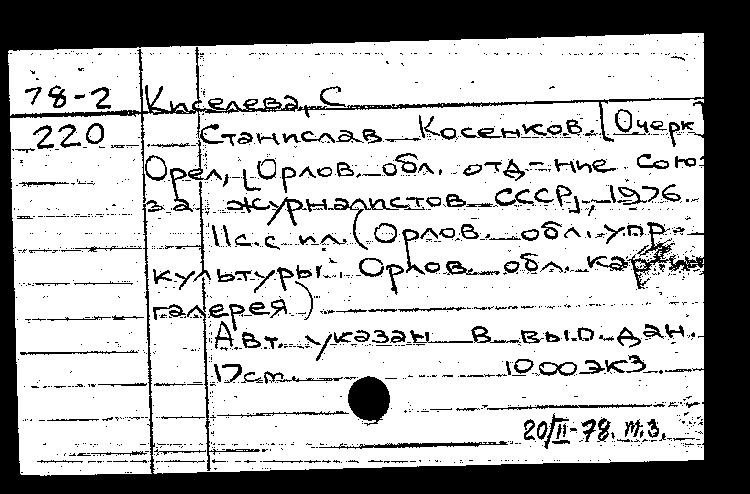 78-2 Киселева, С
220 Станислав Косенков. [Очерк]
Орел, [Орлов. обл. отд-ние Сою-
за журналистов СССР], 1976.
11с. с ил. (Орлов. обл. упр.
культуры. Орлов. обл. картин.
галерея)
Авт. указан в вып. дан.
17см. 1000экз.
20/II-78. т.з.